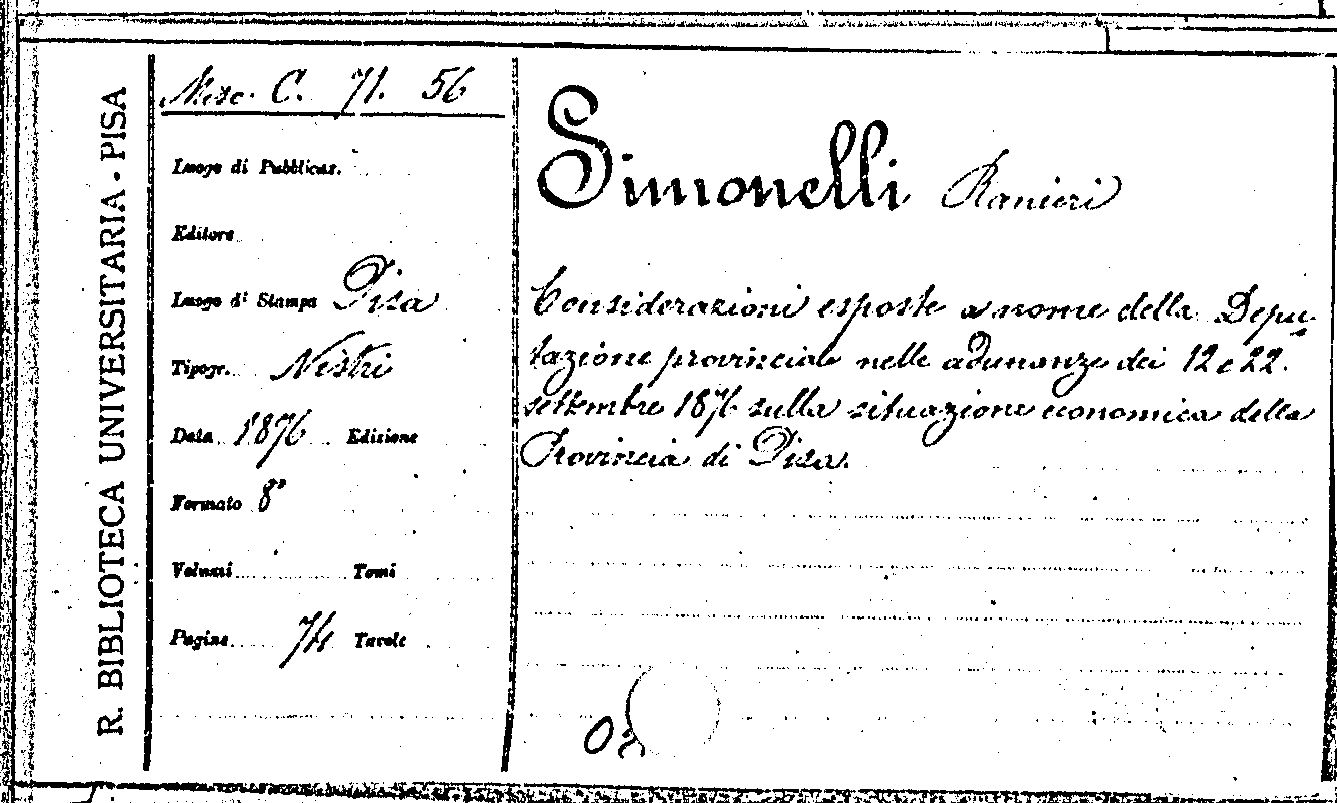 R. BIBLIOTECA UNIVERSITARIA - PISA
Misc. C. 71. 56
Luogo di Pubblicaz.
Editore
Luogo di Stampa Pisa
Tipogr. Nistri
Data 1876 Edizione
Formato 8°
Volumi Tomi
Pagine 74 Tavole
Simonelli Ranieri
Considerazioni esposte a nome della Depu-
tazione provinciale nelle adunanze dei 12 e 22
settembre 1876 sulla situazione economica della
Provincia di Pisa.